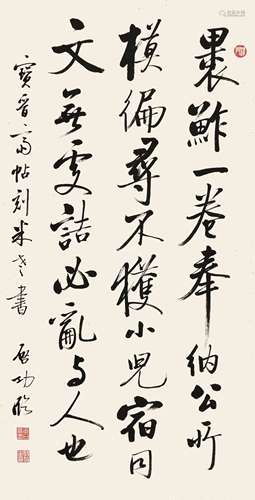 裹鮓一卷奉納公所
模徧尋不獲小兒宿同
文無處詰必亂与人也
寶晉齋帖刻米老書 啟功臨